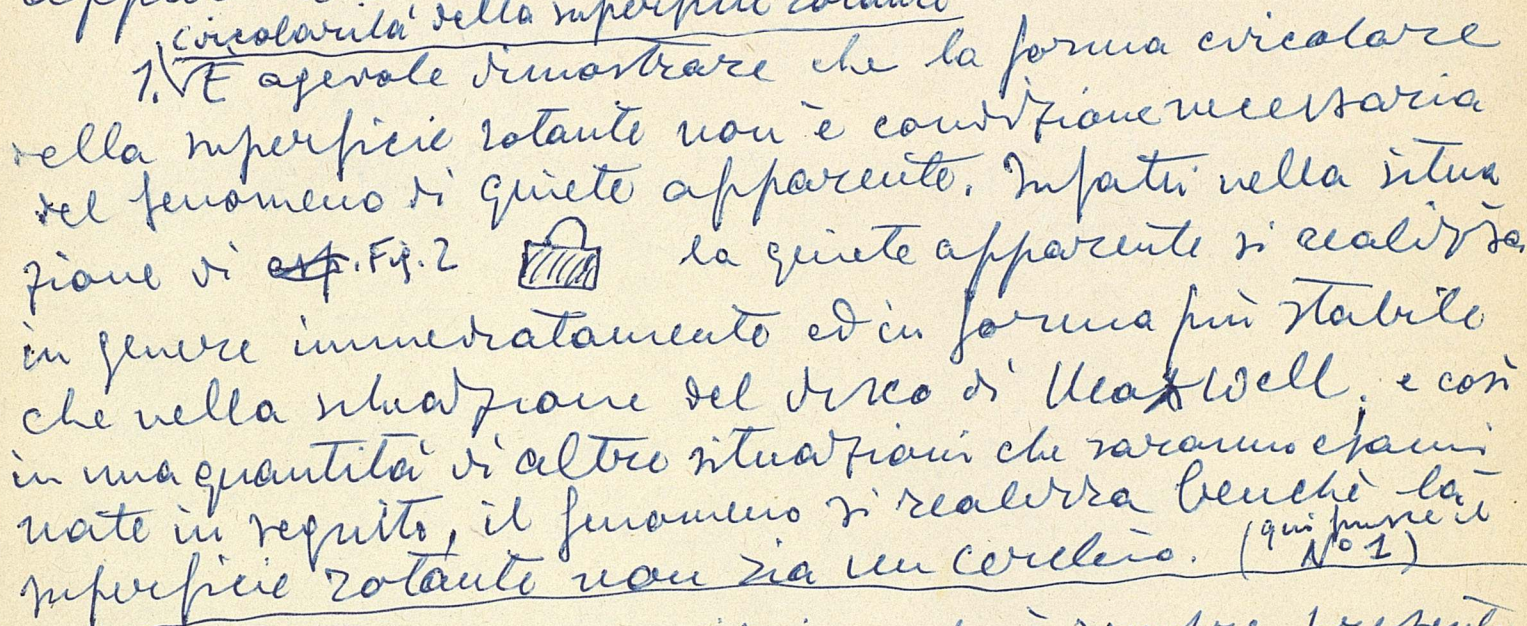 circolarità della superficie rotante
1. È agevole dimostrare che la forma circolare
della superficie rotante non è condizione necessaria
del fenomeno di quiete apparente. Infatti nella situa
zione di Fig. 2 la quiete apparente si realizza
in genere immediatamente ed in forma più stabile
che nella situazione del disco di Maxwell. e così
in una quantità di altre situazioni che saranno esami
nate in seguito, il fenomeno si realizza benchè la
superficie rotante non sia un cerchio. (qui il
N° 1)